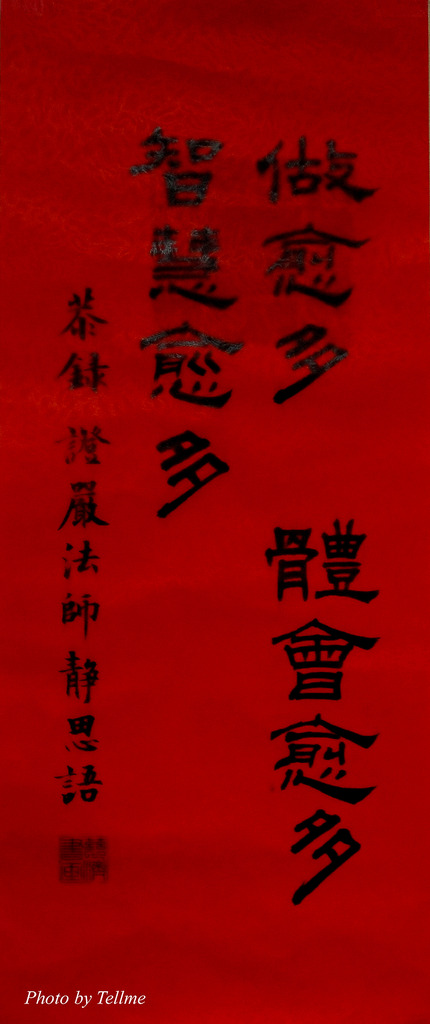 做愈多 體會愈多
智慧愈多
恭錄 證嚴法師靜思語
Photo by Tellme